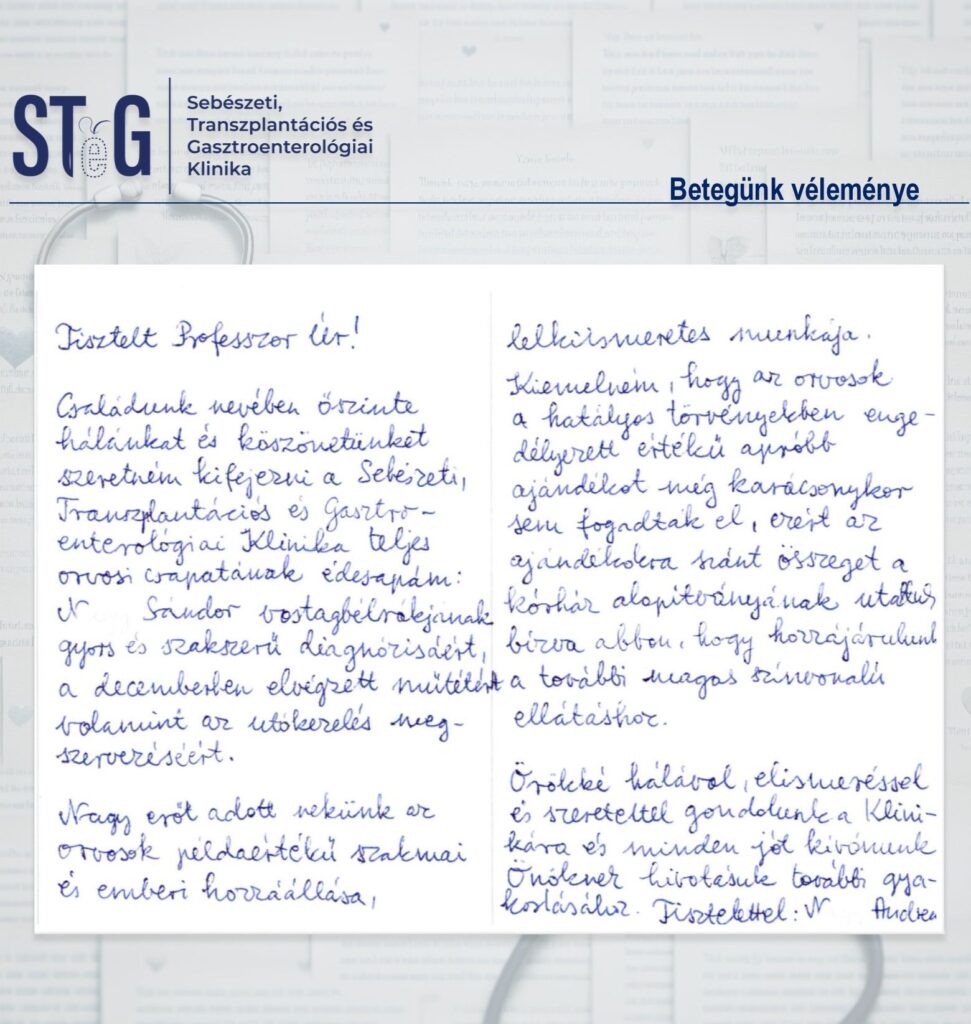 STéG
Sebészeti,
Transzplantációs és
Gasztroenterológiai
Klinika
Betegünk véleménye
Tisztelt Professzor Úr!
Családunk nevében őszinte
hálánkat és köszönetünket
szeretném kifejezni a Sebészeti,
Transzplantációs és Gasztro-
enterológiai Klinika teljes
orvosi csapatának édesapám:
N Sándor vastagbélrákjának
gyors és szakszerű diagnózisáért,
a decemberben elvégzett műtétért
valamint az utókezelés meg-
szervezéséért.
Nagy erőt adott nekünk az
orvosok példaértékű szakmai
és emberi hozzáállása,
lelkiismeretes munkája.
Kiemelném, hogy az orvosok
a hatályos törvényekben enge-
délyezett értékű apróbb
ajándékot még karácsonykor
sem fogadták el, ezért az
ajándékokra szánt összeget a
kórház alapítványának utaltuk
bízva abban, hogy hozzájárulunk
a további magas színvonalú
ellátáshoz.
Örökké hálával, elismeréssel
és szeretettel gondolunk a Klini-
kára és minden jót kívánunk
Önöknek hivatásuk további gya-
korlásához. Tisztelettel: N Andrea